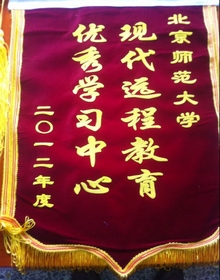 北京师范大学
现代远程教育
优秀学习中心
二〇一二年度